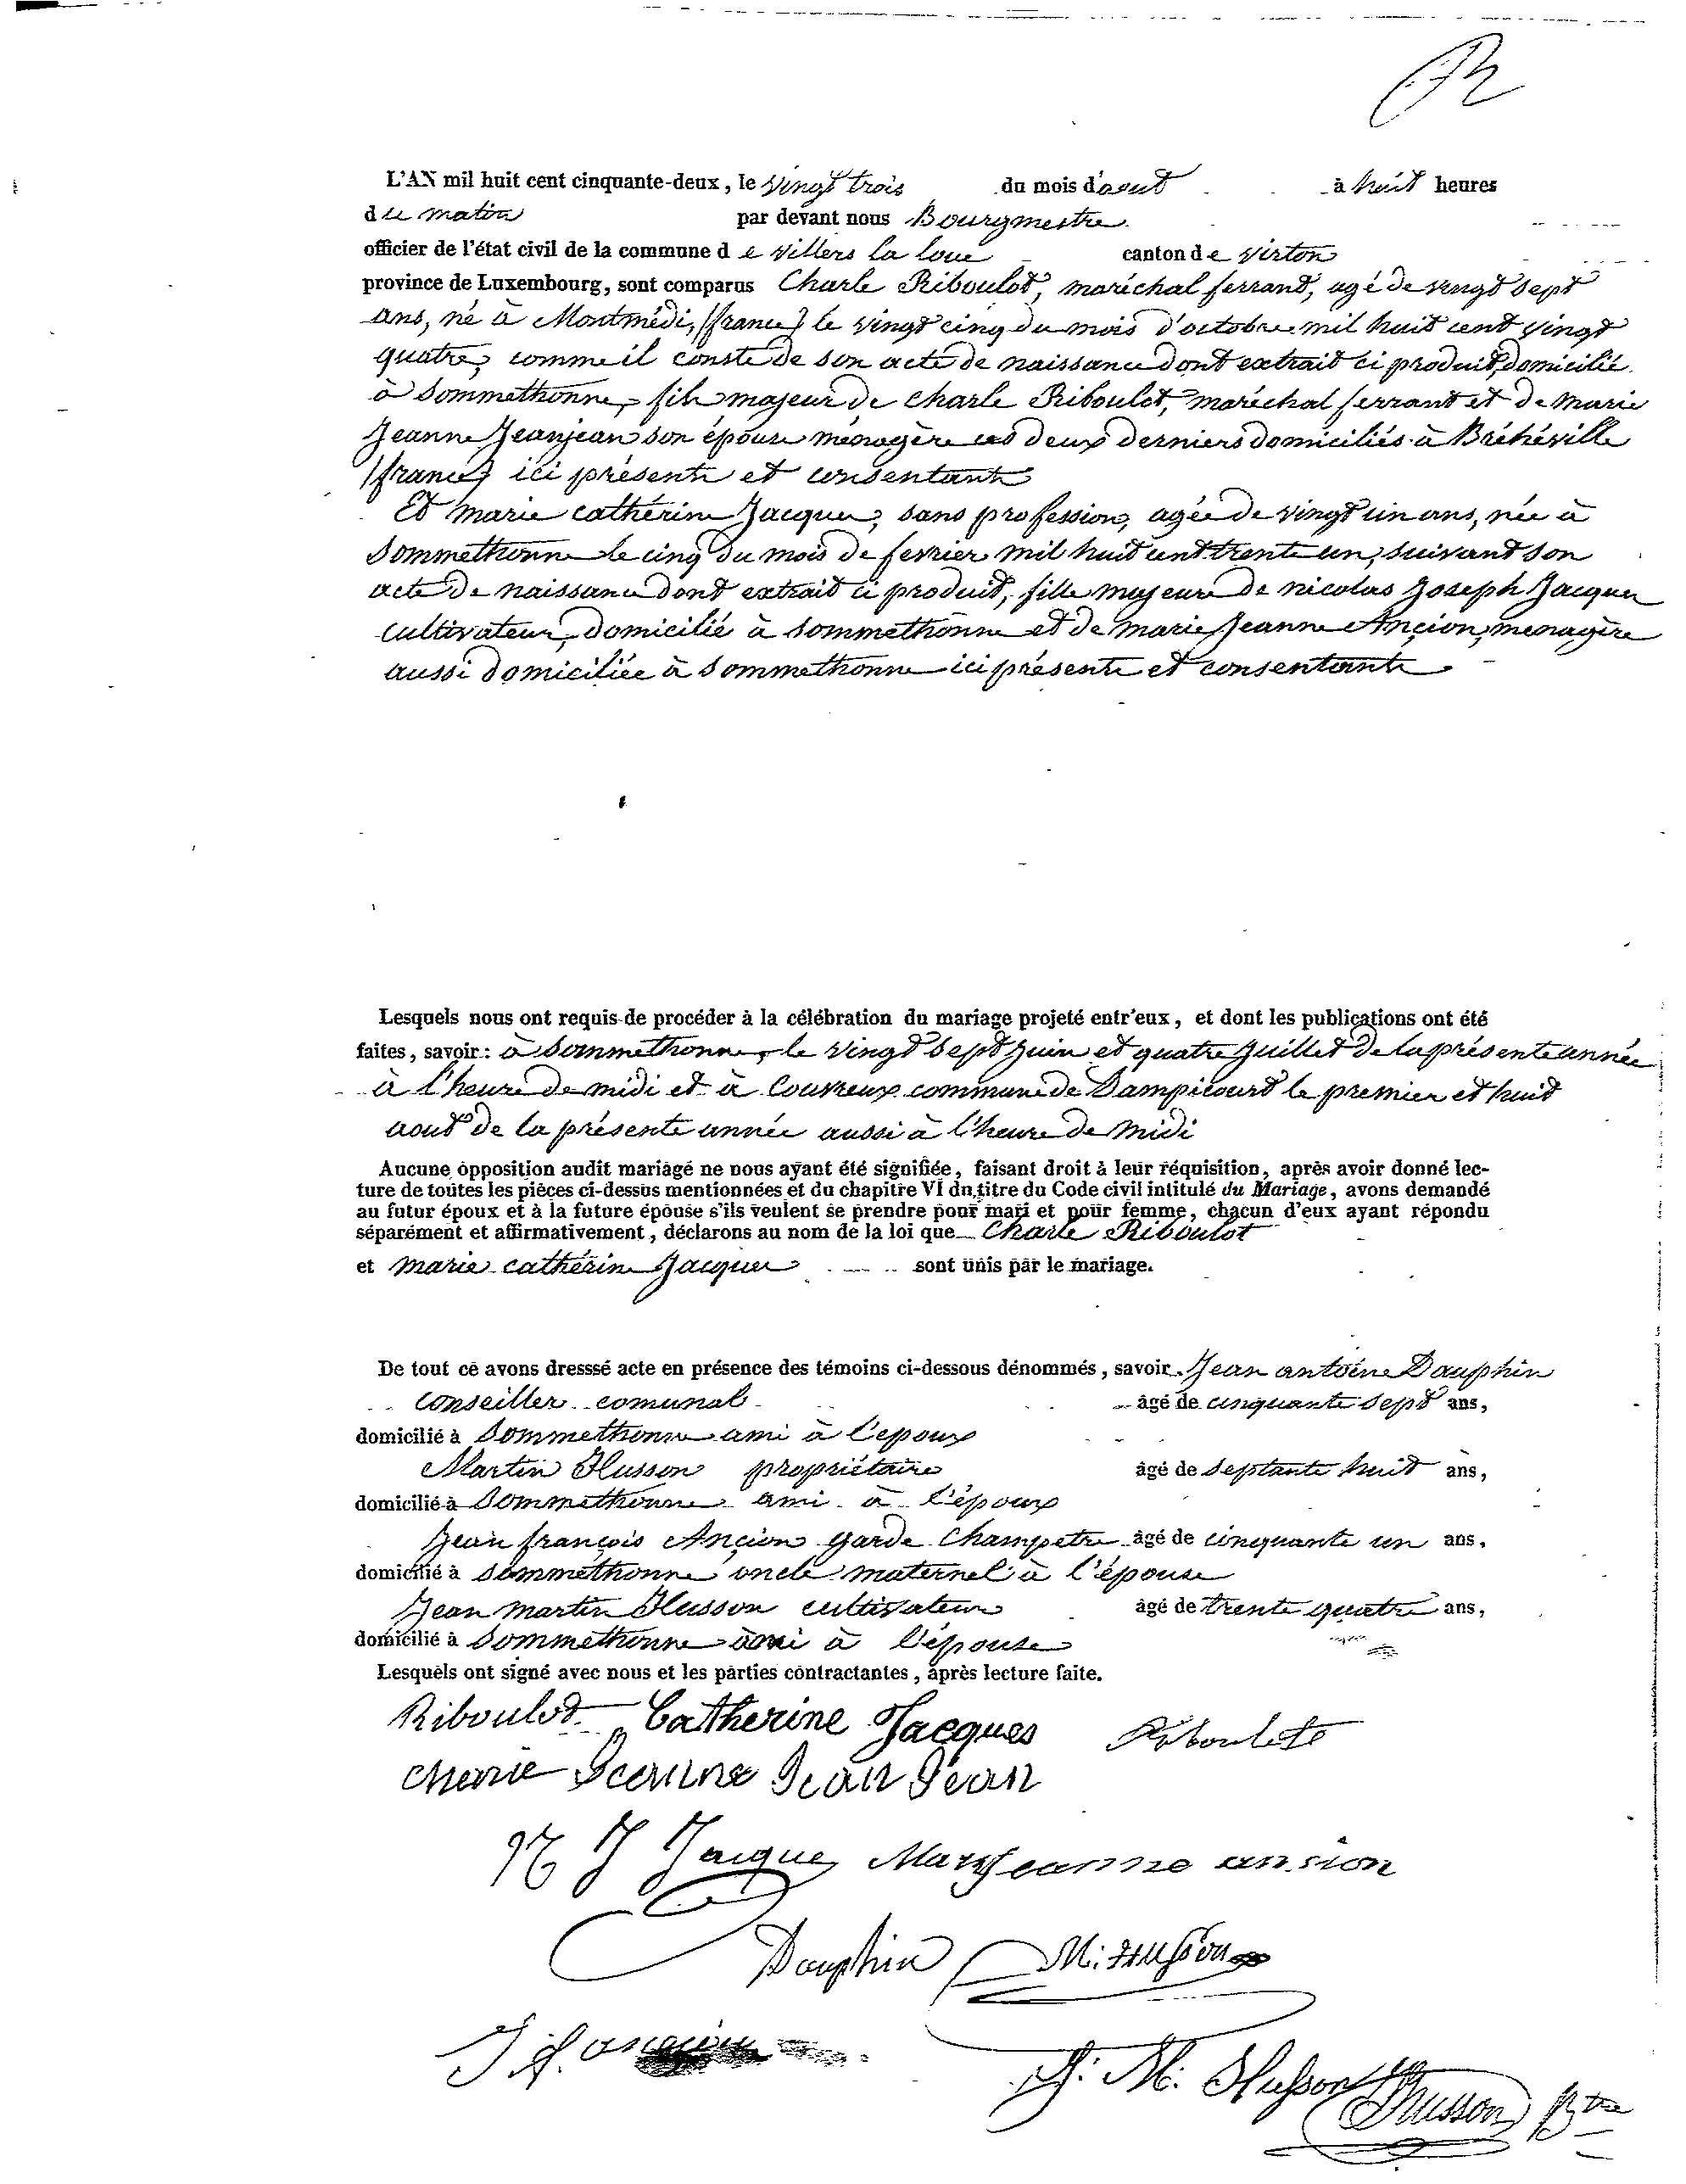 L'AN mil huit cent cinquante-deux, le vingt trois du mois d'aout à huit heures
du matin par devant nous Bourgmestre
officier de l'état civil de la commune de Villers la loue canton de Virton
province de Luxembourg, sont comparus Charle Riboulot, maréchal ferrand, agé de vingt sept
ans, né à Montmédi, (france) le vingt cinq du mois d'octobre mil huit cent vingt
quatre, comme il conste de son acte de naissance dont extrait ci produit, domicilié
à Sommethonne, fils majeur de Charle Riboulot, maréchal ferrant et de Marie
Jeanne Jeanjean son épouse ménagère ces deux derniers domiciliés à Bréhéville
(france) ici présents et consentants
Et Marie Cathérine Jacques, sans profession, agée de vingt un ans, née à
Sommethonne le cinq du mois de fevrier mil huit cent trente un, suivant son
acte de naissance dont extrait ci produit, fille majeure de nicolas Joseph Jacques
cultivateur, domicilié à Sommethonne et de Marie Jeanne Ançion, menagère
aussi domiciliée à Sommethonne ici présents et consentants
Lesquels nous ont requis de procéder à la célébration du mariage projeté entr'eux, et dont les publications ont été
faites, savoir : à Sommethonne, le vingt sept Juin et quatre Juillet de la présente année
à l'heure de midi et à Couvreux commune de Dampicourt le premier et huit
aout de la présente année aussi à l'heure de Midi
Aucune opposition audit mariage ne nous ayant été signifiée, faisant droit à leur réquisition, après avoir donné lec-
ture de toutes les pièces ci-dessus mentionnées et du chapitre VI du titre du Code civil intitulé du Mariage, avons demandé
au futur époux et à la future épouse s'ils veulent se prendre pour mari et pour femme, chacun d'eux ayant répondu
séparément et affirmativement, déclarons au nom de la loi que Charle Riboulot
et Marie Cathérine Jacques sont unis par le mariage.
De tout ce avons dresssé acte en présence des témoins ci-dessous dénommés, savoir Jean antoine Dauphin
Conseiller comunal âgé de cinquante sept ans,
domicilié à Sommethonne ami à l'epoux
Martin Husson propriétaire âgé de septante huit ans,
domicilié à Sommethonne ami à l'époux
Jean françois Ançion garde Champetre âgé de cinquante un ans,
domicilié à Sommethonne oncle maternel à l'épouse
Jean Martin Husson cultivateur âgé de trente quatre ans,
domicilié à Sommethonne ami à l'épouse
Lesquels ont signé avec nous et les parties contractantes, après lecture faite.
Riboulot Catherine Jacques Riboulot
Marie Jeanne Jean Jean
N J Jacques Marijeanne ansion
Dauphin M: Husson
J f. ancion
J: M: Husson Husson Btre